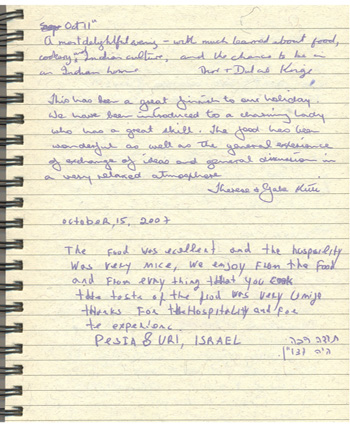 Oct 11"
A most delightful evening - with much learned about food,
cookery, Indian culture, and the chance to be in
an Indian home
This has been a great finish to our holiday.
We have been introduced to a charming lady
who has a great skill. The food has been
wonderful as well as the general experience
of exchange of ideas and general discussion in
a very relaxed atmosphere
October, 15, 2007
The food was excellent and the huspability
was very mice, we enjoy From the Food
and From evry thing that you
the taste of the food was very uniqe
thanks For the Hospitality and For
te experienc
PESIA & URI, ISRAEL
תודה רבה
היה מצוין.